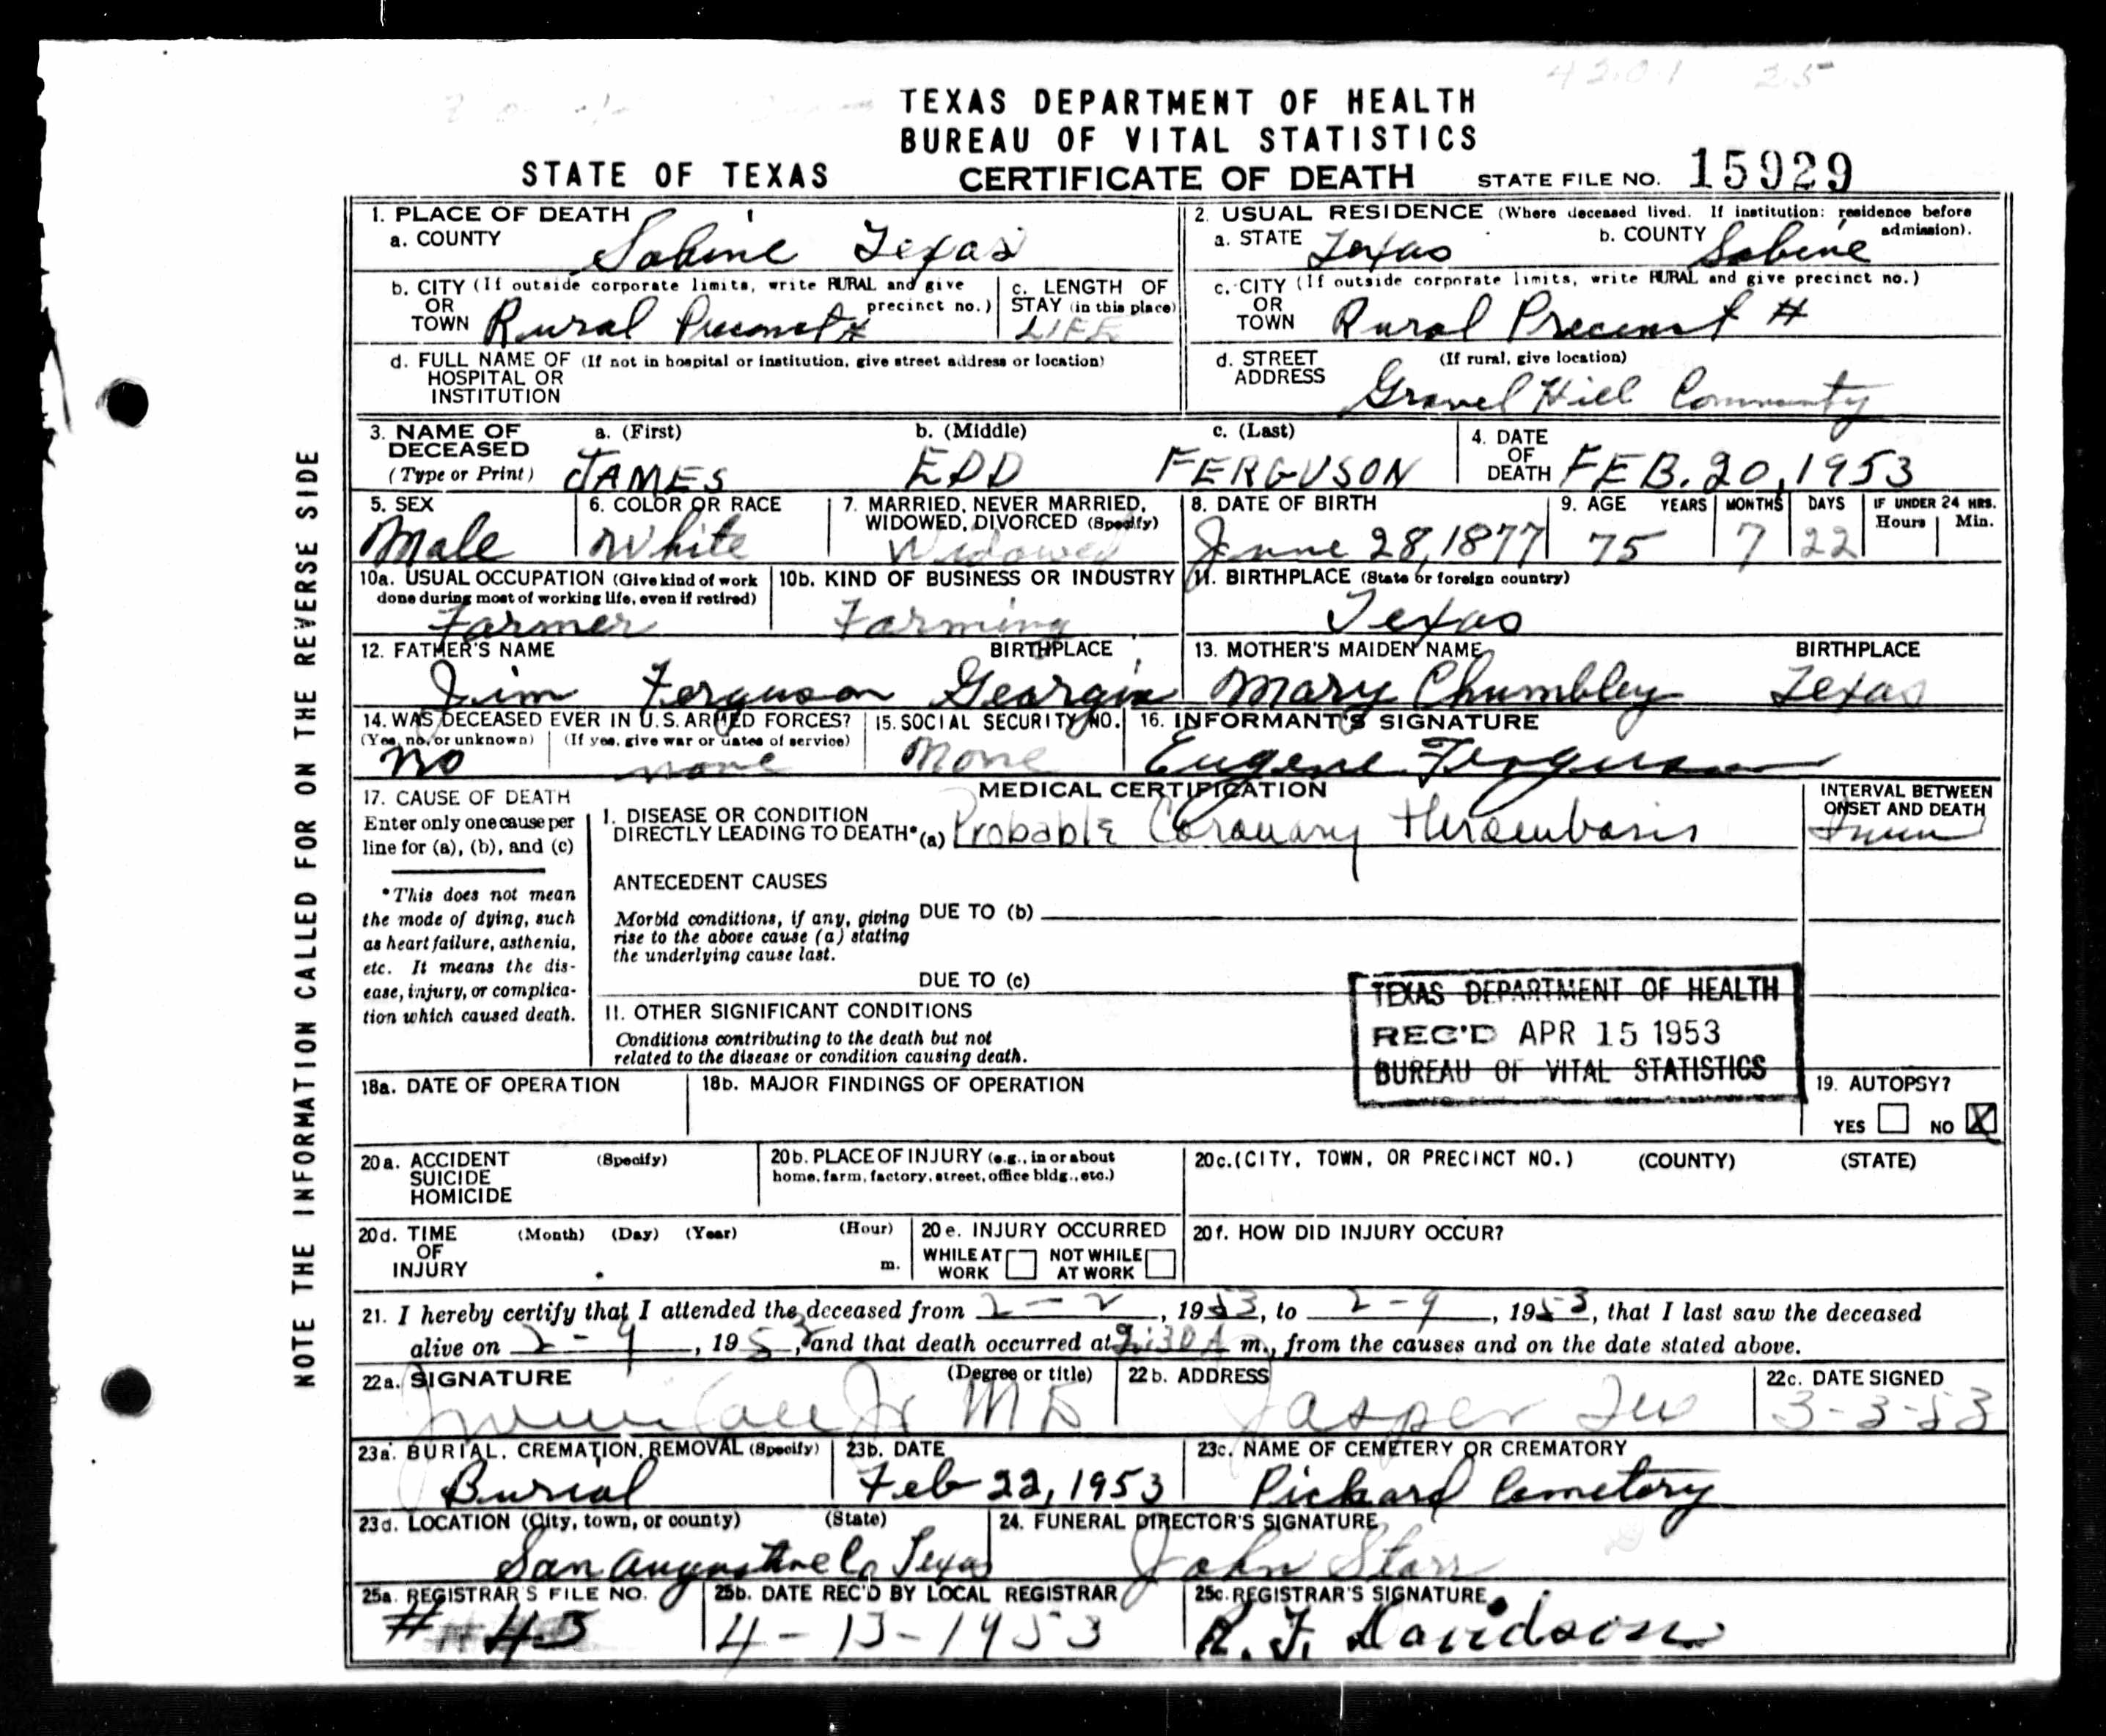 4201 25
TEXAS DEPARTMENT OF HEALTH
BUREAU OF VITAL STATISTICS
STATE OF TEXAS CERTIFICATE OF DEATH STATE FILE NO. 15929
NOTE THE INFORMATION CALLED FOR ON THE REVERSE SIDE
1. PLACE OF DEATH
a. COUNTY Sabine Texas
2. USUAL RESIDENCE (Where deceased lived. If institution: residence before admission).
a. STATE Texas b. COUNTY Sabine
b. CITY (If outside corporate limits, write RURAL and give precinct no.)
OR
TOWN Rural Precinct #
c. LENGTH OF
STAY (in this place)
LIFE
c. CITY (If outside corporate limits, write RURAL and give precinct no.)
OR
TOWN Rural Precinct #
d. FULL NAME OF (If not in hospital or institution, give street address or location)
HOSPITAL OR
INSTITUTION
d. STREET (If rural, give location)
ADDRESS Gravel Hill Community
3. NAME OF DECEASED (Type or Print)
a. (First) b. (Middle) c. (Last)
JAMES EDD FERGUSON
4. DATE OF DEATH FEB. 20, 1953
5. SEX
Male
6. COLOR OR RACE
White
7. MARRIED, NEVER MARRIED, WIDOWED, DIVORCED (Specify)
Widowed
8. DATE OF BIRTH
June 28, 1877
9. AGE YEARS MONTHS DAYS IF UNDER 24 HRS.
Hours Min.
75 7 22
10a. USUAL OCCUPATION (Give kind of work
done during most of working life, even if retired)
Farmer
10b. KIND OF BUSINESS OR INDUSTRY
Farming
11. BIRTHPLACE (State or foreign country)
Texas
12. FATHER'S NAME BIRTHPLACE
Jim Ferguson Georgia
13. MOTHER'S MAIDEN NAME BIRTHPLACE
Mary Chumbley Texas
14. WAS DECEASED EVER IN U.S. ARMED FORCES?
(Yes, no, or unknown) (If yes, give war or dates of service)
no none
15. SOCIAL SECURITY NO.
None
16. INFORMANT'S SIGNATURE
Eugene Ferguson
17. CAUSE OF DEATH
Enter only one cause per
line for (a), (b), and (c)
*This does not mean
the mode of dying, such
as heart failure, asthenia,
etc. It means the dis-
ease, injury, or complica-
tion which caused death.
MEDICAL CERTIFICATION
I. DISEASE OR CONDITION
DIRECTLY LEADING TO DEATH* (a) Probable Coronary thrombosis
INTERVAL BETWEEN
ONSET AND DEATH
ANTECEDENT CAUSES
Morbid conditions, if any, giving
rise to the above cause (a) stating
the underlying cause last.
DUE TO (b)
DUE TO (c)
II. OTHER SIGNIFICANT CONDITIONS
Conditions contributing to the death but not
related to the disease or condition causing death.
TEXAS DEPARTMENT OF HEALTH
REC'D APR 15 1953
BUREAU OF VITAL STATISTICS
18a. DATE OF OPERATION
18b. MAJOR FINDINGS OF OPERATION
19. AUTOPSY?
YES NO X
20a. ACCIDENT (Specify)
SUICIDE
HOMICIDE
20b. PLACE OF INJURY (e.g., in or about
home, farm, factory, street, office bldg., etc.)
20c. (CITY, TOWN, OR PRECINCT NO.) (COUNTY) (STATE)
20d. TIME (Month) (Day) (Year) (Hour)
OF
INJURY m.
20e. INJURY OCCURRED
WHILE AT WORK NOT WHILE AT WORK
20f. HOW DID INJURY OCCUR?
21. I hereby certify that I attended the deceased from 2-2, 1953, to 2-9, 1953, that I last saw the deceased
alive on 2-9, 1953, and that death occurred at 9:30 A m., from the causes and on the date stated above.
22a. SIGNATURE (Degree or title)
Jr MD
22b. ADDRESS
Jasper Tex
22c. DATE SIGNED
3-3-53
23a. BURIAL, CREMATION, REMOVAL (Specify)
Burial
23b. DATE
Feb 22, 1953
23c. NAME OF CEMETERY OR CREMATORY
Pickard Cemetery
23d. LOCATION (City, town, or county) (State)
San Augustine Co Texas
24. FUNERAL DIRECTOR'S SIGNATURE
John Starr
25a. REGISTRAR'S FILE NO.
# 45
25b. DATE REC'D BY LOCAL REGISTRAR
4-13-1953
25c. REGISTRAR'S SIGNATURE
R. F. Davidson